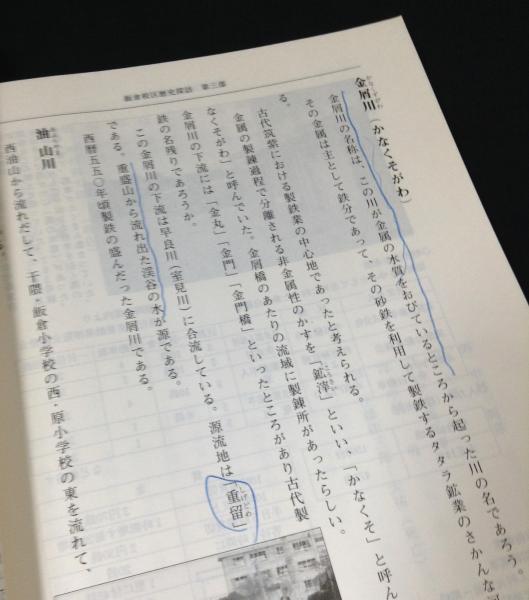 飯倉校区歴史探訪 第三部
金屑川（かなくそがわ）
金屑川の名称は、この川が金属の水質をおびているところから起った川の名であろう。
その金属は主として鉄分であって、その砂鉄を利用して製鉄するタタラ鉱業のさかんな
る。
古代筑紫における製鉄業の中心地であったと考えられる。
金属の製錬過程で分離される非金属性のかすを「鉱滓」といい、「かなくそ」と呼ん
なくそがわ」と呼んでいた。金屑橋のあたりの流域に製錬所があったらしい。
金屑川の下流には「金丸」「金門」「金門橋」といったところがあり古代製
鉄の名残りであろうか。
この金屑川の下流は早良川（室見川）に合流している。源流地は「重留」
である。重盛山から流れ出た渓谷の水が源である。
西暦五五〇年頃製鉄の盛んだった金屑川である。
油山川
西油山から流れだして、干隈・飯倉小学校の西・原小学校の東を流れて、